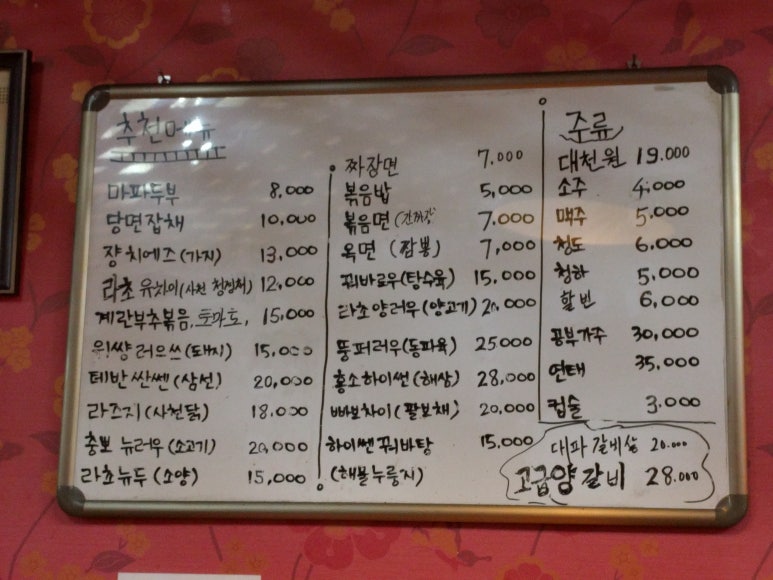 추천메뉴
마파두부 8,000
당면잡채 10,000
쟝치에즈 (가지) 13,000
라초 유차이 (사천 청경채) 12,000
계란부추볶음, 토마토, 15,000
위썅러우쓰 (돼지) 15,000
테반싼쎈 (삼선) 20,000
라즈지 (사천닭) 18,000
충뽀 뉴러우 (소고기) 20,000
라초뉴두 (소양) 15,000
짜장면 7,000
볶음밥 5,000
볶음면 (간짜장) 7,000
옥면 (짬뽕) 7,000
꿔바로우 (탕수육) 15,000
라초양러우 (양고기) 20,000
뚱퍼러우 (동파육) 25000
홍소하이썬 (해삼) 28,000
빠보차이 (팔보채) 20,000
하이쎈 꿔바탕 15,000
(해물누룽지)
주류
대천원 19.000
소주 4,000
맥주 5,000
청도 6,000
청하 5,000
할빈 6,000
공부가주 30,000
연태 35,000
컵술 3,000
대파 갈비살 20.000
고급양갈비 28.000